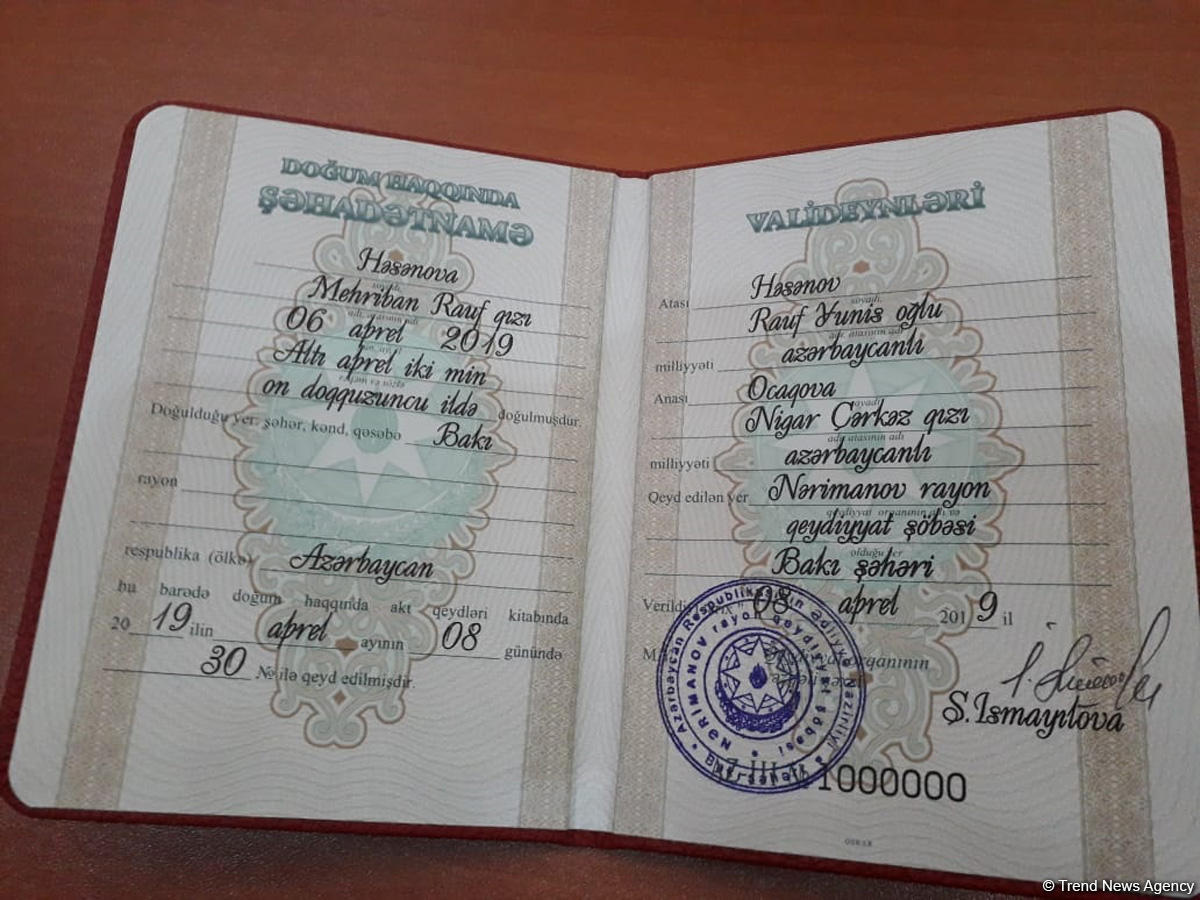 DOĞUM HAQQINDA
ŞƏHADƏTNAMƏ
Həsənova
soyadı
Mehriban Rauf qızı
adı, atasının adı
06 aprel 2019
Altı aprel iki min
rəqəm və sözlə
on doqquzuncu ildə doğulmuşdur.
Doğulduğu yer: şəhər, kənd, qəsəbə Bakı
rayon
respublika (ölkə) Azərbaycan
bu barədə doğum haqqında akt qeydləri kitabında
2019 ilin aprel ayının 08 günündə
30 № ilə qeyd edilmişdir.
VALİDEYNLƏRİ
Atası Həsənov
soyadı
Rauf Yunis oğlu
adı, atasının adı
milliyyəti azərbaycanlı
Anası Ocaqova
soyadı
Nigar Çərkəz qızı
adı, atasının adı
milliyyəti azərbaycanlı
Qeyd edilən yer Nərimanov rayon
qeydiyyat orqanının adı və
qeydiyyat şöbəsi
olduğu yer
Bakı şəhəri
08 aprel 2019 il
orqanının
Azərbaycan Respublikasının Ədliyyə Nazirliyi
NƏRİMANOV rayon qeydiyyat şöbəsi
Bakı şəhəri
Ş.Ismayılova
1000000
© Trend News Agency